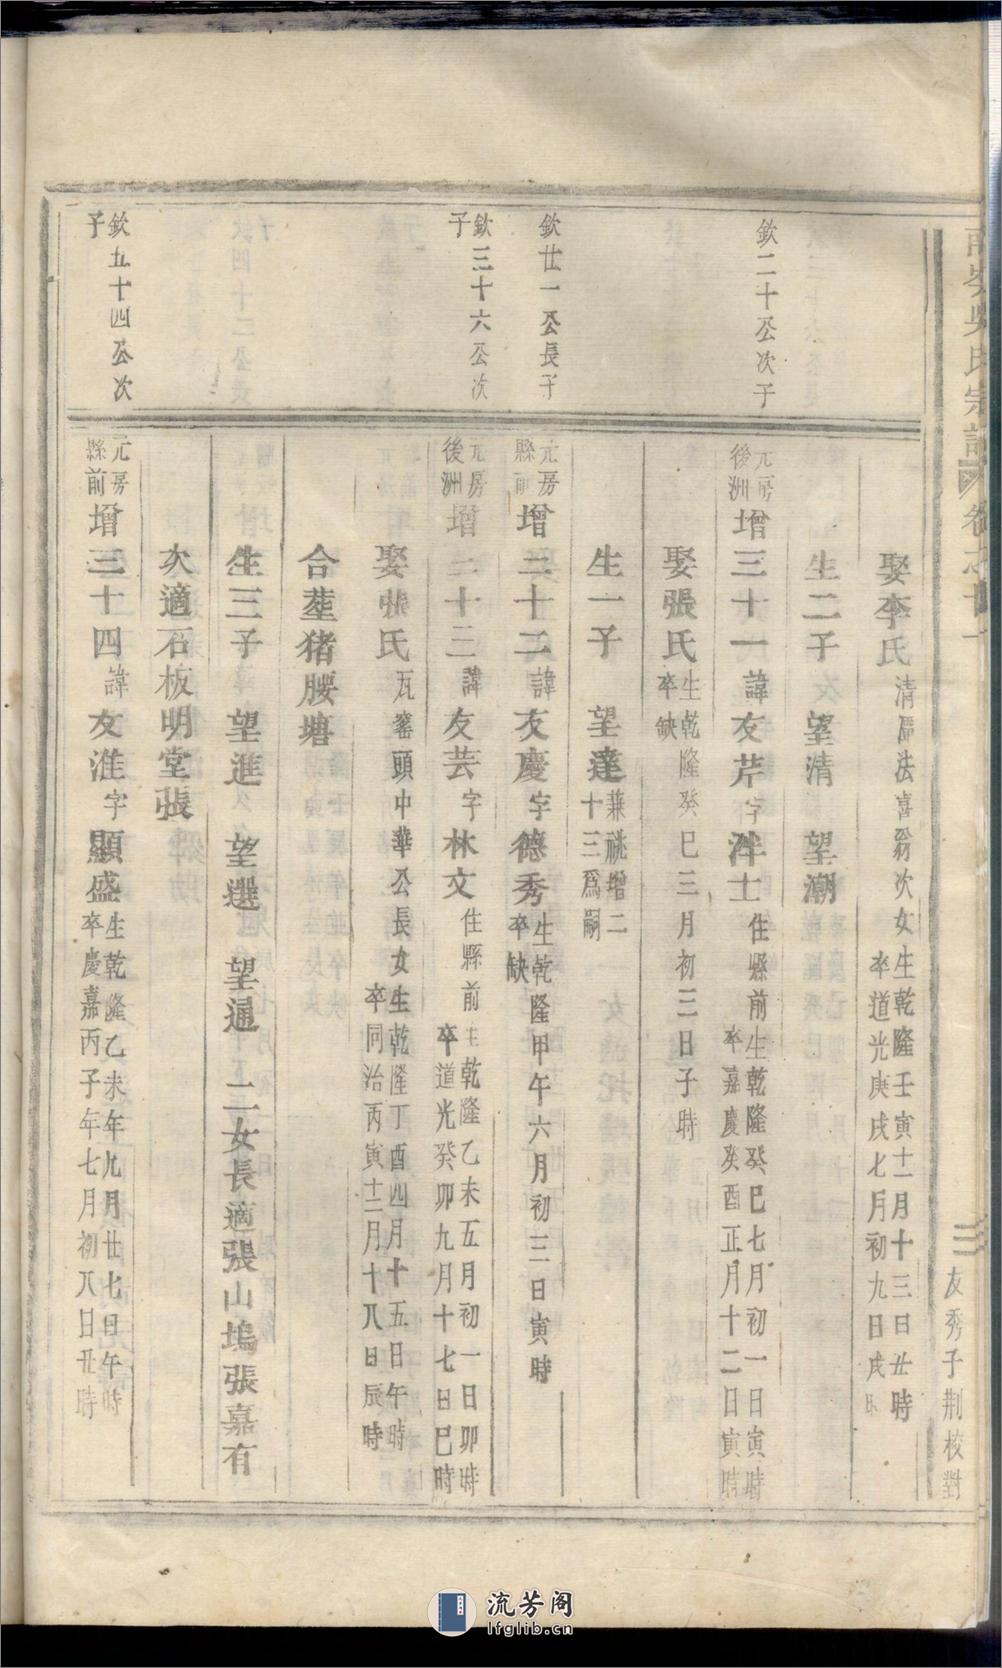 南岑吳氏宗譜 卷之十一
三 友秀子荆校對
娶李氏 清隱法喜翁次女 生乾隆壬寅十一月十三日丑時
卒道光庚戌七月初九日戌時
生二子 望清 望潮
欽二十公次子
元房後洲 增三十一 諱友芹 字泮士 住縣前 生乾隆癸巳七月初一日寅時
卒嘉慶癸酉正月十二日寅時
娶張氏 生乾隆癸巳三月初三日子時
卒缺
生一子 望達 兼祧增二
十三為嗣
欽廿一公長子
元房縣前 增三十二 諱友慶 字德秀 生乾隆甲午六月初三日寅時
卒缺
欽三十六公次子
元房後洲 增三十三 諱友芸 字林文 住縣前 生乾隆乙未五月初一日卯時
卒道光癸卯九月十七日巳時
娶張氏 瓦窰頭中華公長女 生乾隆丁酉四月十五日午時
卒同治丙寅十二月十八日辰時
合塟猪腰塘
生三子 望進 望選 望通 二女長適張山塢張嘉有
次適石板明堂張
欽五十四公次子
元房縣前 增三十四 諱友淮 字顯盛 生乾隆乙未年九月廿七日午時
卒慶嘉丙子年七月初八日丑時
流芳阁
lfglib.cn